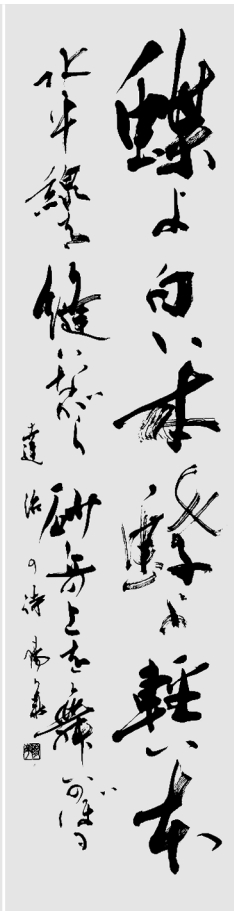 蝶よ白い本蝶よ軽い本
水平線を縫いながら砂丘の上を舞いのぼる
達治の詩